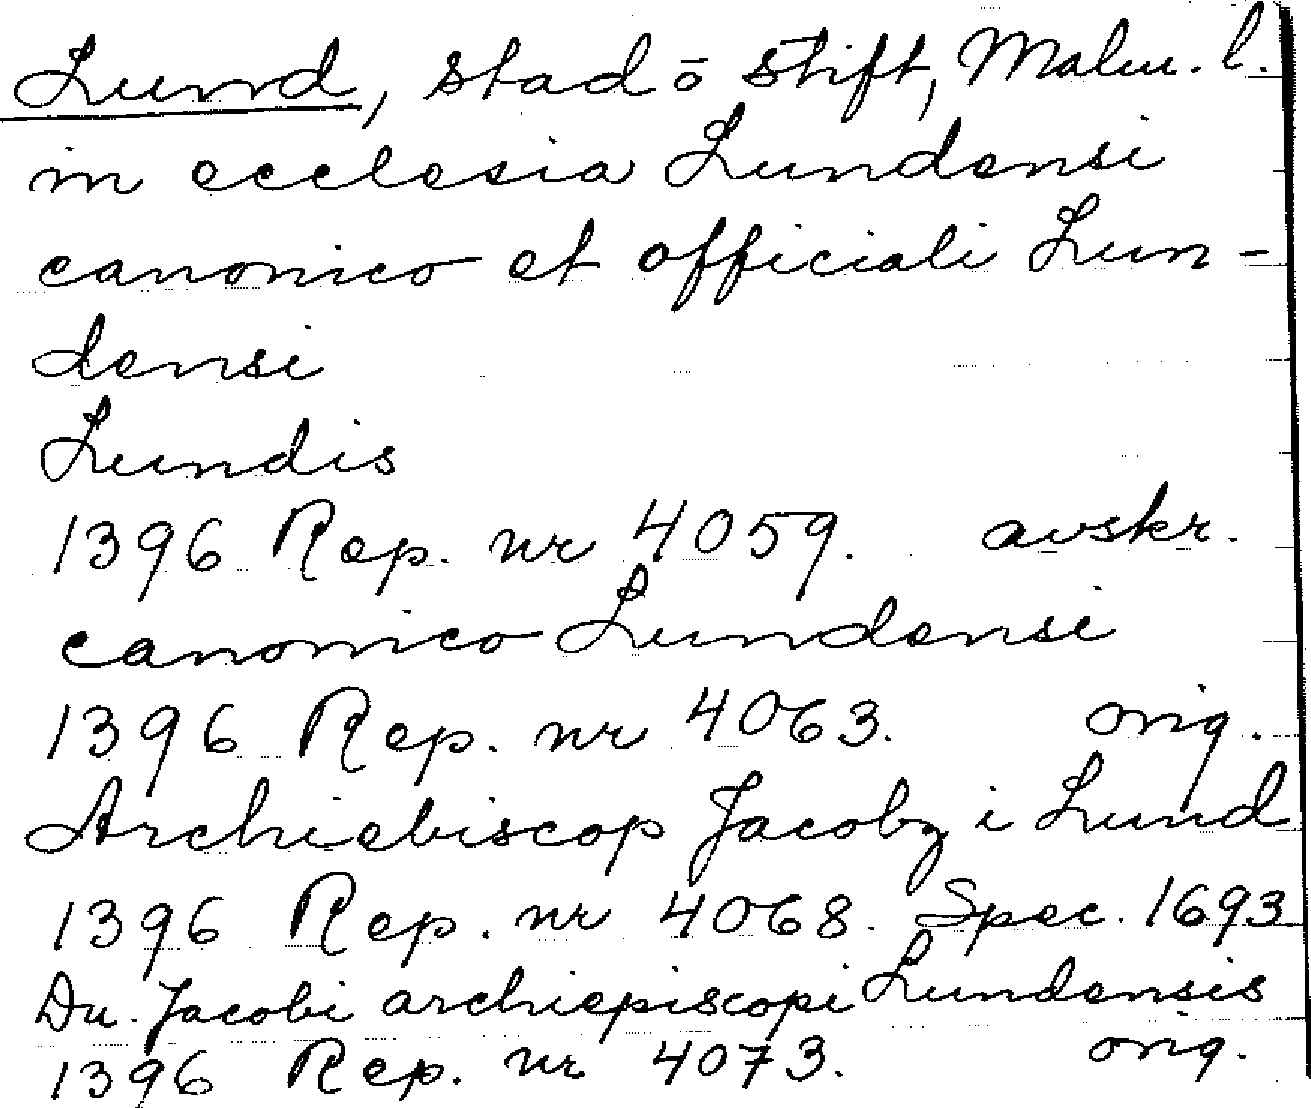 Lund, stad o stift, Malm. l.
in ecclesia Lundensi
canonico et officiali Lun-
densi
Lundis
1396 Rep. nr 4059. avskr.
canonico Lundensi
1396 Rep. nr 4063. orig.
Archiebiscop Jacobz i Lund
1396 Rep. nr 4068. Spec. 1693
Dn. Jacobi archiepiscopi Lundensis
1396 Rep. nr 4073. orig.